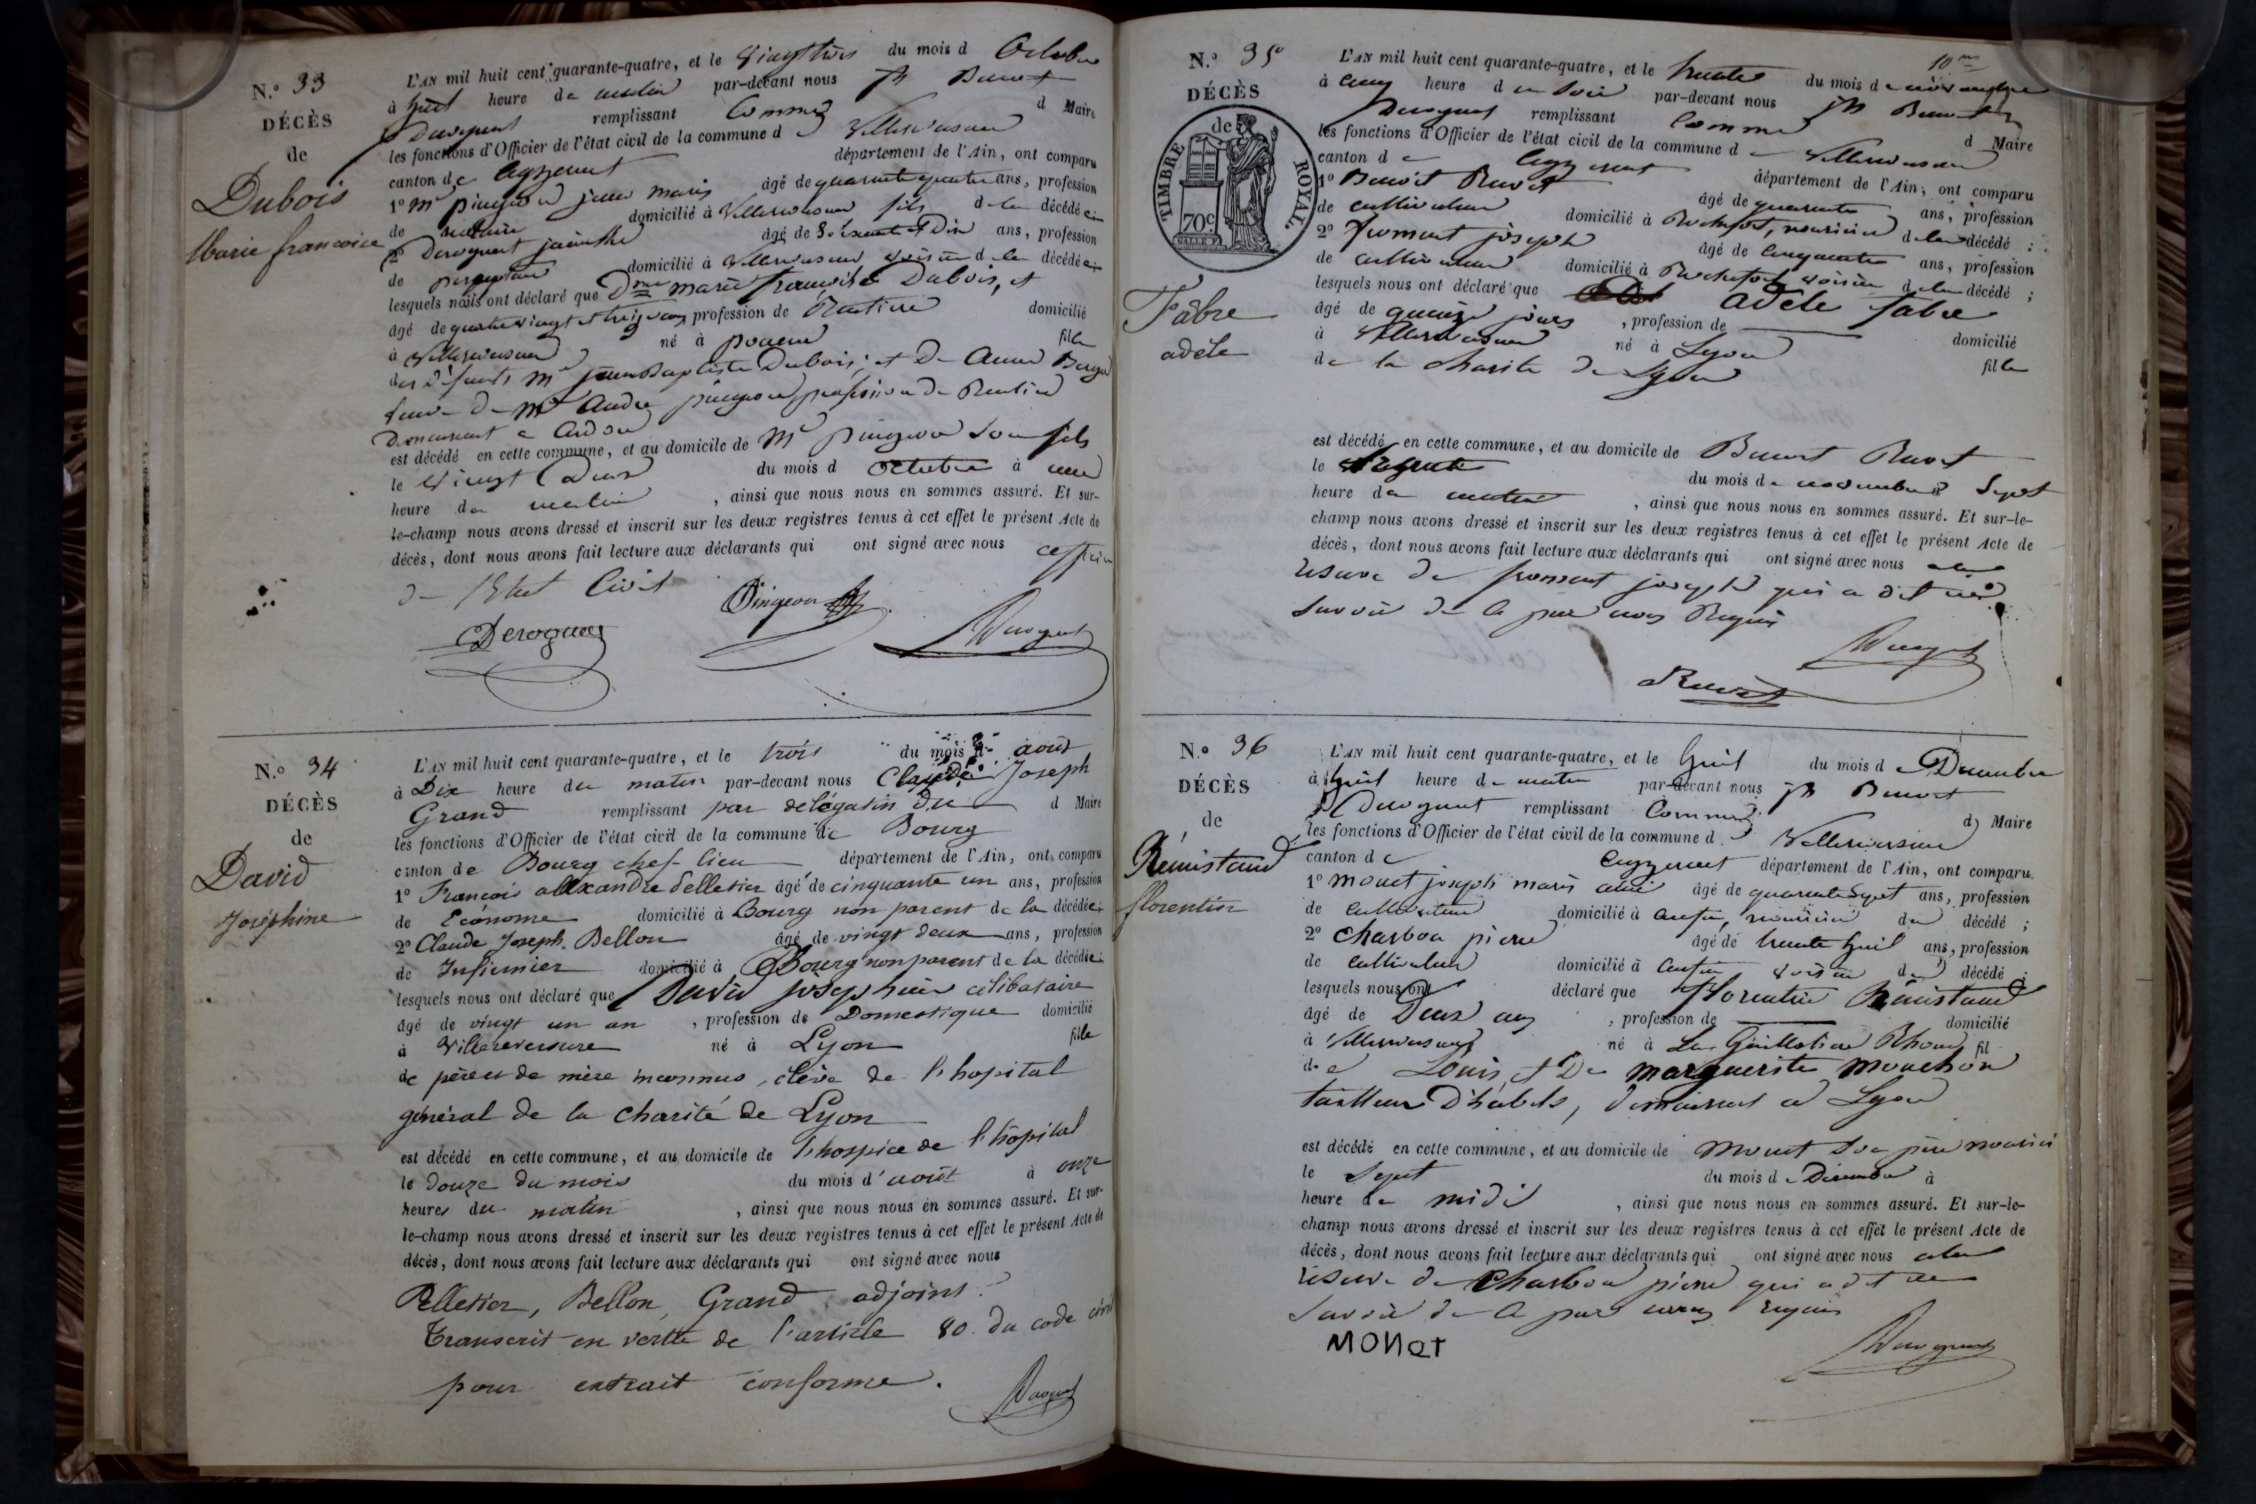 N.º 33
DÉCÈS
de
Dubois
Marie francoise
L'AN mil huit cent quarante-quatre, et le vingt trois du mois d Octobre
à huit heure de matin par-devant nous Benoit
Derognat remplissant Comme d Maire
les fonctions d'Officier de l'état civil de la commune d Villereversure
canton de Ceyzeriat département de l'Ain, ont comparu
1º Mr pingeon jean marie âgé de quarante quatre ans, profession
de notaire domicilié à Villereversure fils de la décédée
2º Derognat jacinthe âgé de Soixante et Dix ans, profession
de percepteur domicilié à Villereversure voisin de la décédée
lesquels nous ont déclaré que Dme marie françoise Dubois,
âgé de quatre vingt et treize ans, profession de Rentiere domicilié
à Villereversure né à poncin fille
des défunts Mr jean Baptiste Dubois, et De Anne
veuve De Mr André pingeon, profession de Rentier
Demeurant a
est décédé en cette commune, et au domicile de Mr pingeon Son fils
le vingt Deux du mois d Octobre à une
heure du matin, ainsi que nous nous en sommes assuré. Et sur-
le-champ nous avons dressé et inscrit sur les deux registres tenus à cet effet le présent Acte de
décès, dont nous avons fait lecture aux déclarants qui ont signé avec nous officier
de l'Etat Civil
Derognat Pingeon Derognat
N.º 34
DÉCÈS
de
David
Joséphine
L'AN mil huit cent quarante-quatre, et le trois du mois d' août
à Dix heure du matin par-devant nous Claude Joseph
Grand remplissant par délégation du d Maire
les fonctions d'Officier de l'état civil de la commune de Bourg
canton de Bourg chef-lieu département de l'Ain, ont comparu
1º François allexandre Pelletier âgé de cinquante un ans, profession
de Econome domicilié à Bourg non parent de la décédée;
2º Claude Joseph Bellon âgé de vingt deux ans, profession
de Infirmier domicilié à Bourg non parent de la décédée
lesquels nous ont déclaré que David joséphine célibataire
âgé de vingt un an, profession de Domestique domicilié
à Villereversure né à Lyon fille
de père et de mère inconnus, élève de l'hopital
général de la charité de Lyon
est décédé en cette commune, et au domicile de l'hospice de l'hôpital
le douze du mois du mois d'août à onze
heures du matin, ainsi que nous nous en sommes assuré. Et sur-
le-champ nous avons dressé et inscrit sur les deux registres tenus à cet effet le présent Acte de
décès, dont nous avons fait lecture aux déclarants qui ont signé avec nous
Pelletier, Bellon, Grand adjoint.
Transcrit en vertu de l'article 80 du code civil
pour extrait conforme.
Derognat
N.º 35
DÉCÈS
de
TIMBRE ROYAL
70 c
Fabre
adèle
L'AN mil huit cent quarante-quatre, et le trente du mois de novembre
à cinq heure d u Soir par-devant nous Benoit
Derognat remplissant Comme d Maire
les fonctions d'Officier de l'état civil de la commune d Villereversure
canton d e Ceyzeriat département de l'Ain, ont comparu
1º Benoit Ravet âgé de quarante ans, profession
de cultivateur domicilié à Rochefort, nouricier de la décédé;
2º froment joseph âgé de cinquante ans, profession
de cultivateur domicilié à Rochefort voisin de la décédé;
lesquels nous ont déclaré que adele fabre
âgé de quinze jours, profession de domicilié
à Villereversure né à Lyon fille
de la charite De Lyon
est décédé en cette commune, et au domicile de Benoit Ravet
le trente du mois de novembre à Sept
heure du matin, ainsi que nous nous en sommes assuré. Et sur-le-
champ nous avons dressé et inscrit sur les deux registres tenus à cet effet le présent Acte de
décès, dont nous avons fait lecture aux déclarants qui ont signé avec nous a la
reserve De froment joseph qui a dit ne
Savoir de ce par nous Requis
Derognat
Ravet
N.º 36
DÉCÈS
de
Rémistand
florentin
L'AN mil huit cent quarante-quatre, et le huit du mois d e Decembre
à huit heure d u matin par-devant nous Benoit
Derognat remplissant Comme d Maire
les fonctions d'Officier de l'état civil de la commune d Villereversure
canton d e Ceyzeriat département de l'Ain, ont comparu
1º monet joseph marie âgé de quarante Sept ans, profession
de cultivateur domicilié à nouricier du décédé;
2º charbon pierre âgé de trente huit ans, profession
de cultivateur domicilié à voisin du décédé
lesquels nous ont déclaré que florentin Rémistand
âgé de Deux ans, profession de domicilié
à Villereversure né à La Guillotière Rhone fil
de Louis, et De marguerite monchon
tailleur D'habits, demeurant a Lyon
est décédé en cette commune, et au domicile de monet Son père nouricier
le Sept du mois de Décembre à
heure de midi, ainsi que nous nous en sommes assuré. Et sur-le-
champ nous avons dressé et inscrit sur les deux registres tenus à cet effet le présent Acte de
décès, dont nous avons fait lecture aux déclarants qui ont signé avec nous a la
reserve de charbon pierre qui a dit ne
Savoir de ce par nous requis
MONET
Derognat